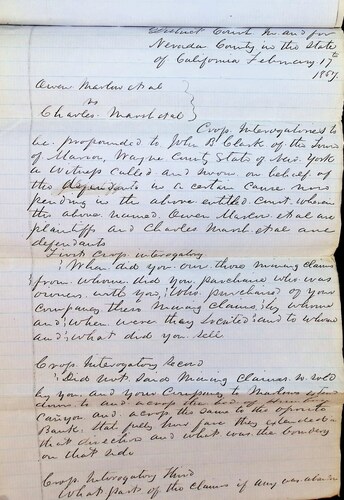 District Court in and for
Nevada County in the State
of California February 17th
1857.
Owen Marlow et al
vs
Charles Marsh et al
Cross Interrogatories to
be propounded to John B Clark of the Town
of Marion, Wayne County State of New York
a witness called and sworn on behalf of
the defendants in a certain cause now
pending in the above entitled Court wherein
the above named Owen Marlow et al are
plaintiffs and Charles Marsh et al are
defendants
First Cross interrogatory
When did you own those mining claims
from whom did you purchase who was
owners with you, Who purchased of your
company these mining claims, by whom
and when were they located and to whom
and what did you sell
Cross Interrogatory Second
Did not said Mining Claims so sold
by you and your Company to Marlow extend
down to and across the bed of
Canyon and across the same to the opposite
Bank. State fully how far they extended in
that direction and what was the boundary
on that side
Cross Interrogatory Third
What part of the claims if any was above